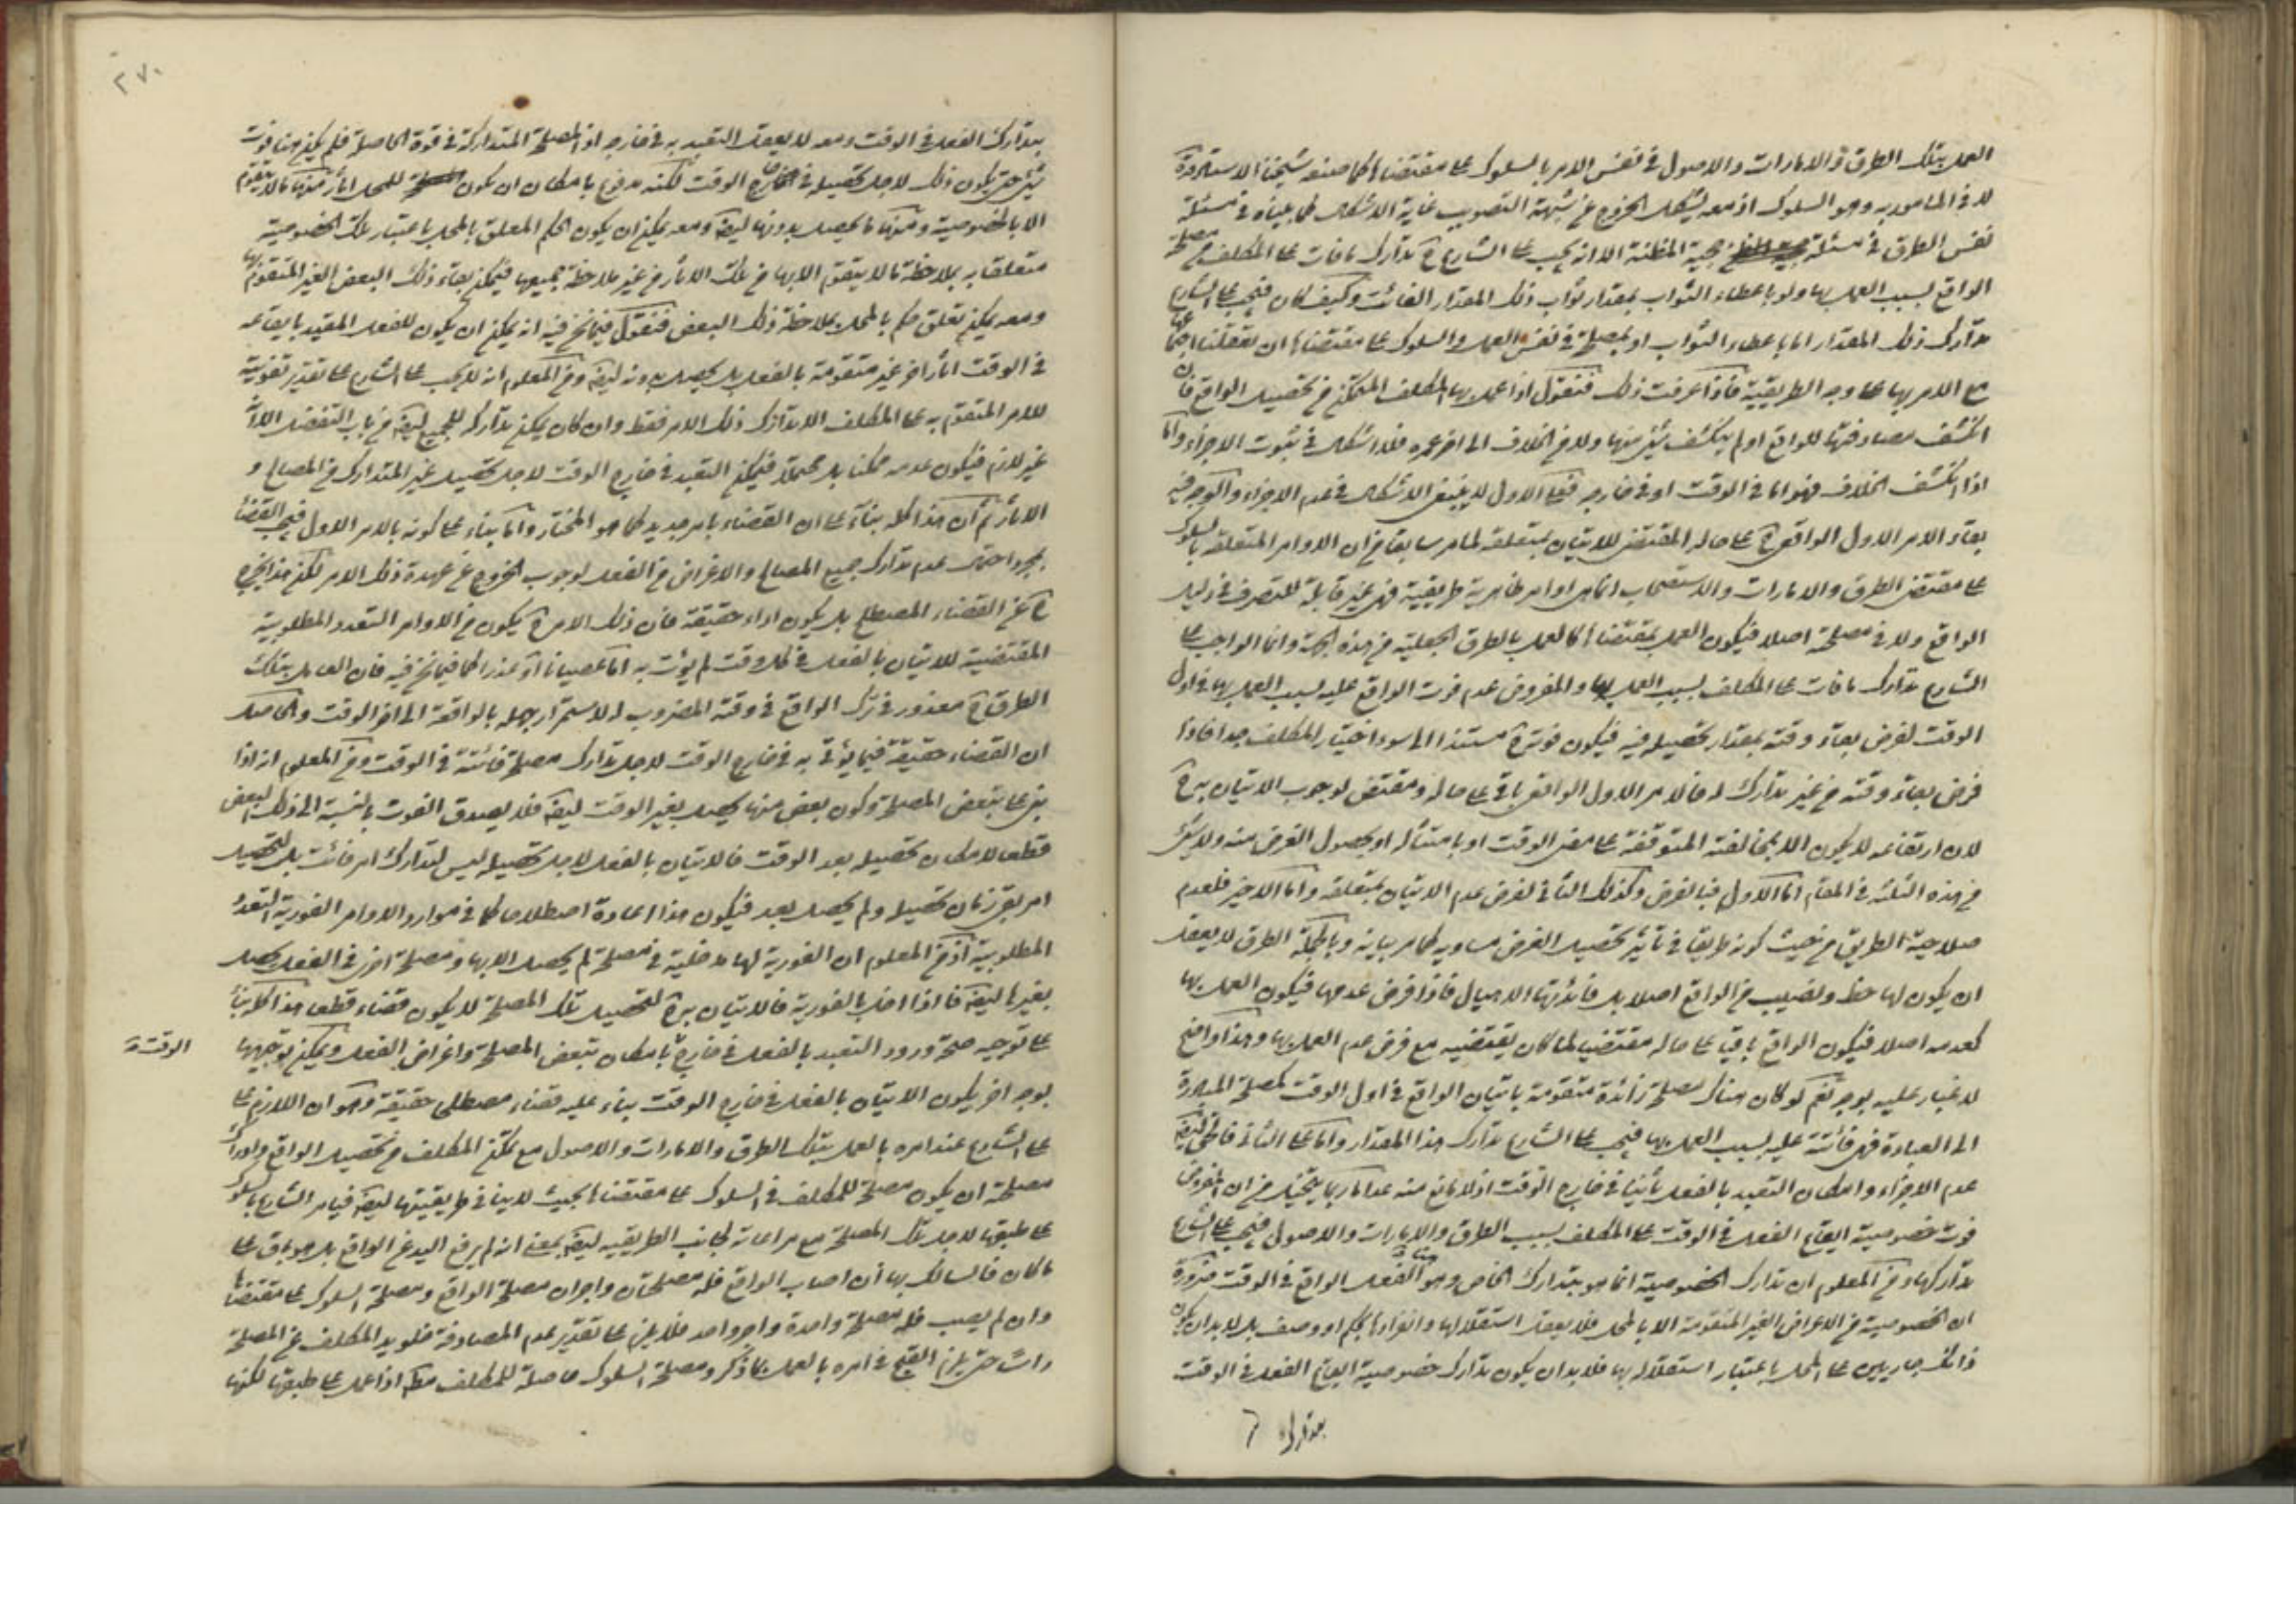 العمل بتلك الطرق والامارات والاصول في نفس الامر بالسلوك على مقتضاها كما صنعه شيخنا الاستاد قده
لا في المأمور به وهو السلوك اذ معه يشكل الخروج عن شبهة التصويب غاية الاشكال كما بيناه في مسئلة
نفس الطرق في مسئلة حجية المظنة الا انه يجب على الشارع ح تدارك ما فات على المكلف من مصلحة
الواقع بسبب العمل بها ولو باعطاء الثواب بمقدار ثواب ذلك المقدار الفائت وكيف كان فيجب على الشارع
تدارك ذلك المقدار اما باعطاء الثواب او بمصلحة في نفس العمل والسلوك على مقتضاها ان تعقلنا اجتماعها
مع الامر بها على وجه الطريقية فاذا عرفت ذلك فنقول اذا عمل بها المكلف المتمكن من تحصيل الواقع فان
انكشف مصادفتها للواقع او لم ينكشف شئ منها ولا من الخلاف الى اخر عمره فلا اشكال في ثبوت الاجزاء واما
اذا انكشف الخلاف فهو اما في الوقت او في خارجه فعلى الاول لا ينبغي الاشكال في عدم الاجزاء والوجه فيه
بقاء الامر الاول الواقعي ح على حاله المقتضي للاتيان بمتعلقه لما مر سابقا من ان الاوامر المتعلقة بالسلوك
على مقتضى الطرق والامارات والاستصحاب انما هي اوامر ظاهرية طريقية فهي غير قابلة للتصرف في ذلك
الواقع ولا في مصلحة اصلا فيكون العمل بمقتضاها كالعمل بالطرق الجعلية من هذه الجهة وانما الواجب على
الشارع تدارك ما فات على المكلف بسبب العمل بها والمفروض عدم فوت الواقع عليه بسبب العمل بها في اول
الوقت لفرض بقاء وقته بمقدار تحصيله فيه فيكون فوته ح مستندا الى سوء اختيار المكلف جدا فاذا
فرض بقاء وقته من غير تدارك له فالامر الاول الواقعي باق على حاله ومقتض لوجوب الاتيان به ح
لان ارتفاعه لا يكون الا بمخالفته المتوقفة على مضي الوقت او بامتثاله او بحصول الغرض منه ولا شئ
من هذه الثلثة في المقام اما الاول فبالفرض وكذلك الثاني لفرض عدم الاتيان بمتعلقه واما الاخير فلعدم
صلاحية الطريق من حيث كونه طريقا في تأثير تحصيل الغرض مساويه كما مر بيانه وبالجملة الطرق لا يعقل
ان يكون لها حظ ونصيب من الواقع اصلا بل فائدتها الايصال فاذا فرض عدمها فيكون العمل بها
كعدمه اصلا فيكون الواقع باقيا على حاله مقتضيا لما كان يقتضيه مع فرض عدم العمل بها وهذا واضح
لا غبار عليه بوجه نعم لو كان هناك مصلحة زائدة متقومة باتيان الواقع في اول الوقت كمصلحة المبادرة
الى العبادة فهي فائتة عليه بسبب العمل بها فيجب على الشارع تدارك هذا المقدار واما على الثاني فالحق ايضا
عدم الاجزاء وامكان التعبد بالفعل ثانيا في خارج الوقت اذ لا مانع منه عدا ما ربما يتخيل من ان المفروض
فوت خصوصية ايقاع الفعل في الوقت على المكلف بسبب الطرق والامارات والاصول فيجب على الشارع
تداركها ومن المعلوم ان تدارك الخصوصية انما هو بتدارك الخاص وهو هنا الفعل الواقع في الوقت ضرورة
ان الخصوصية من الاعراض الغير المتقومة الا بالمحل فلا يعقل استقلالها وانفرادها بحكم او وصف بل لا بد ان يكون
ذانك جاريين على المحل باعتبار استقلاله بها فلا بد ان يكون تدارك خصوصية ايقاع الفعل في الوقت
بتدارك
٢٧٠
بتدارك الفعل في الوقت ومعه لا يعقل التعبد به في خارجه اذ المصلحة المتداركة في قوة الحاصلة فلم يكن هنا فوت
شئ حتى يكون ذلك لاجل تحصيله في خارج الوقت لكنه مدفوع بامكان ان يكون للمحل اثار منها ما لا يتقوم
الا بالخصوصية ومنها ما يحصل بدونها ايضا ومعه يمكن ان يكون الحكم المعلق بالمحل باعتبار تلك الخصوصية
متعلقا به بملاحظة ما لا يتقوم الا بها من تلك الاثار من غير ملاحظة جميعها فيمكن بقاء ذلك البعض الغير المتقوم بها
ومعه يمكن تعلق حكم بالمحل بملاحظة ذلك البعض فنقول فيما نحن فيه انه يمكن ان يكون للفعل المقيد بايقاعه
في الوقت اثار اخر غير متقومة بالفعل بل يحصل بدونه ايضا ومن المعلوم انه لا يجب على الشارع على تقدير تفويته
للامر المتقوم به على المكلف الا تدارك ذلك الامر فقط وان كان يمكن تداركه للجميع ايضا من باب التفضل الا انه
غير لازم فيكون عدمه ممكنا بل محتملا فيمكن التعبد في خارج الوقت لاجل تحصيل غير المتدارك من المصالح و
الاثار ثم ان هذا كله بناء على ان القضاء بامر جديد كما هو المختار واما بناء على كونه بالامر الاول فيجب القضاء
بمجرد احتمال عدم تدارك جميع المصالح والاغراض من الفعل لوجوب الخروج عن عهدة ذلك الامر لكن هذا يخرج
ح عن القضاء المصطلح بل يكون اداء حقيقة فان ذلك الامر ح يكون من الاوامر المتعدد المطلوبية
المقتضية للاتيان بالفعل في كل وقت لم يؤت به اما عصيانا او عذرا كما فيما نحن فيه فان العامل بتلك
الطرق ح معذور في ترك الواقع في وقته المضروب له لاستمرار جهله بالواقعة الى اخر الوقت والحاصل
ان القضاء حقيقة فيما يؤتى به في خارج الوقت لاجل تدارك مصلحة فائتة في الوقت ومن المعلوم انه اذا
بنى على تبعض المصلحة وكون بعض منها يحصل بغير الوقت ايضا فلا يصدق الفوت بالنسبة الى ذلك البعض
قطعا لامكان تحصيله بعد الوقت فالاتيان بالفعل لاجل تحصيله ليس لتدارك امر فائت بل لتحصيل
امر بقي زمان تحصيله ولم يحصل بعد فيكون هذا اعادة اصطلاحا كما في موارد الاوامر الفورية المتعدد
المطلوبية اذ من المعلوم ان الفورية لها مدخلية في مصلحة لم يحصل الا بها ومصلحة اخرى في الفعل يحصل
بغيرها ايضا فاذا اخل بالفورية فالاتيان به ح لتحصيل تلك المصلحة لا يكون قضاء قطعا هذا كله بناء
على توجيه صحة ورود التعبد بالفعل في خارج بامكان تبعض المصلحة واغراض الفعل ويمكن توجيهها
الوقت
بوجه اخر يكون الاتيان بالفعل في خارج الوقت بناء عليه قضاء مصطلحا حقيقة وهو ان اللازم على
على الشارع عند امره بالعمل بتلك الطرق والامارات والاصول مع تمكن المكلف من تحصيل الواقع وادراك
مصلحته ان يكون مصلحة للمكلف في السلوك على مقتضاها بحيث لا ينافي طريقيتها ايضا فيأمر الشارع بالسلوك
على طبقها لاجل تلك المصلحة مع مراعاته لجانب الطريقية ايضا بمعنى انه لم يرفع اليد عن الواقع بل هو باق على
ما كان فالسالك بها ان اصاب الواقع فله مصلحتان واجران مصلحة الواقع ومصلحة السلوك على مقتضاها
وان لم يصب فله مصلحة واحدة واجر واحد فلا يلزم على تقدير عدم المصادفة خلو يد المكلف عن المصلحة
رأسا حتى يلزم القبح في امره بالعمل بما ذكر ومصلحة السلوك حاصلة للمكلف مطلقا اذا عمل على طبقها لكنها